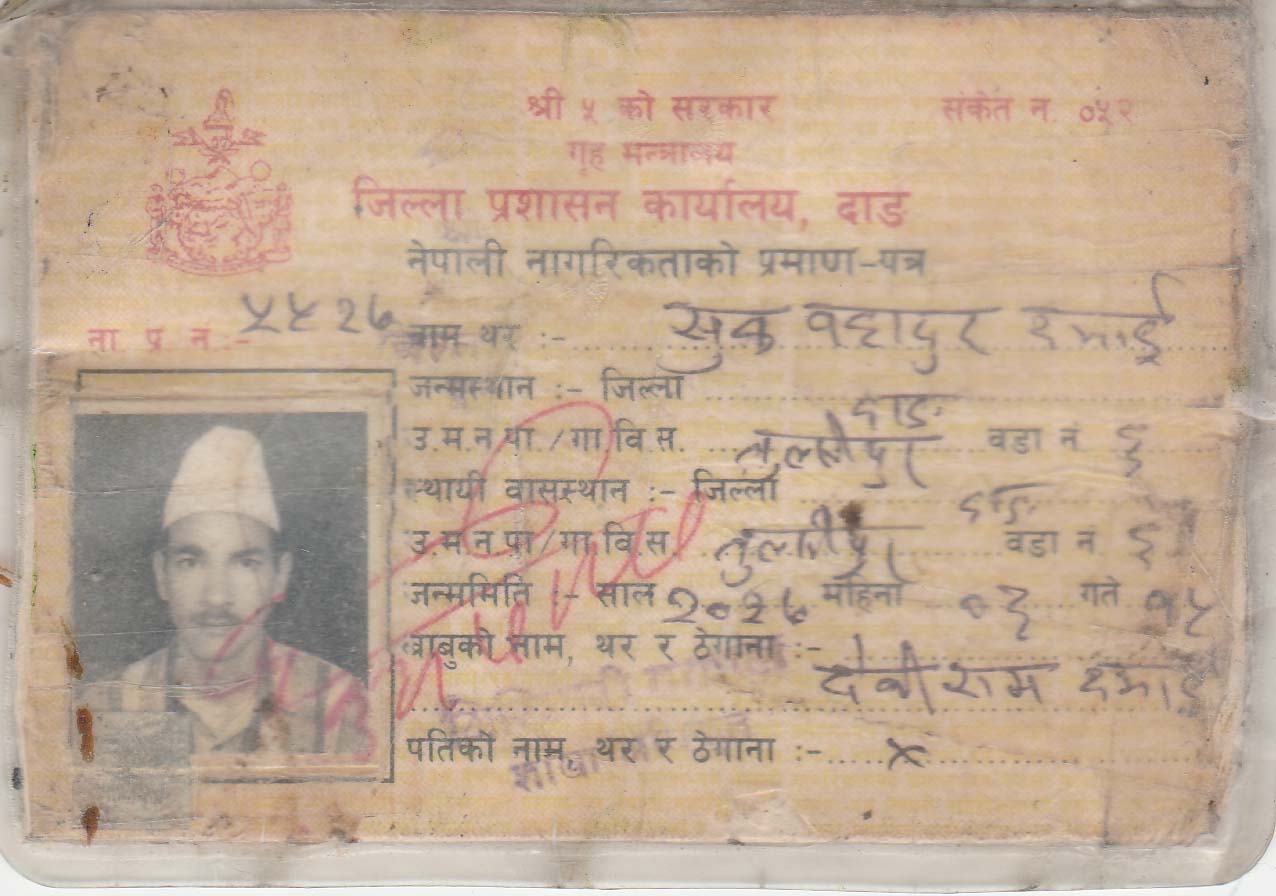 श्री ५ को सरकार
संकेत न. ०५२
गृह मन्त्रालय
जिल्ला प्रशासन कार्यालय, दाङ
नेपाली नागरिकताको प्रमाण-पत्र
ना प्र न :- ५५२७
नाम थर :- सुक बहादुर दमाई
जन्मस्थान :- जिल्ला दाङ
उ.म.न.पा./गा.वि.स. तुलसीपुर वडा नं ६
स्थायी वासस्थान :- जिल्ला दाङ
उ.म.न.पा/गा.वि.स. तुलसीपुर वडा नं ६
जन्ममिति :- साल २०२७ महिना ०६ गते १५
बाबुको नाम, थर र ठेगाना :-
देवीराम दमाई
पतिको नाम, थर र ठेगाना :- ×